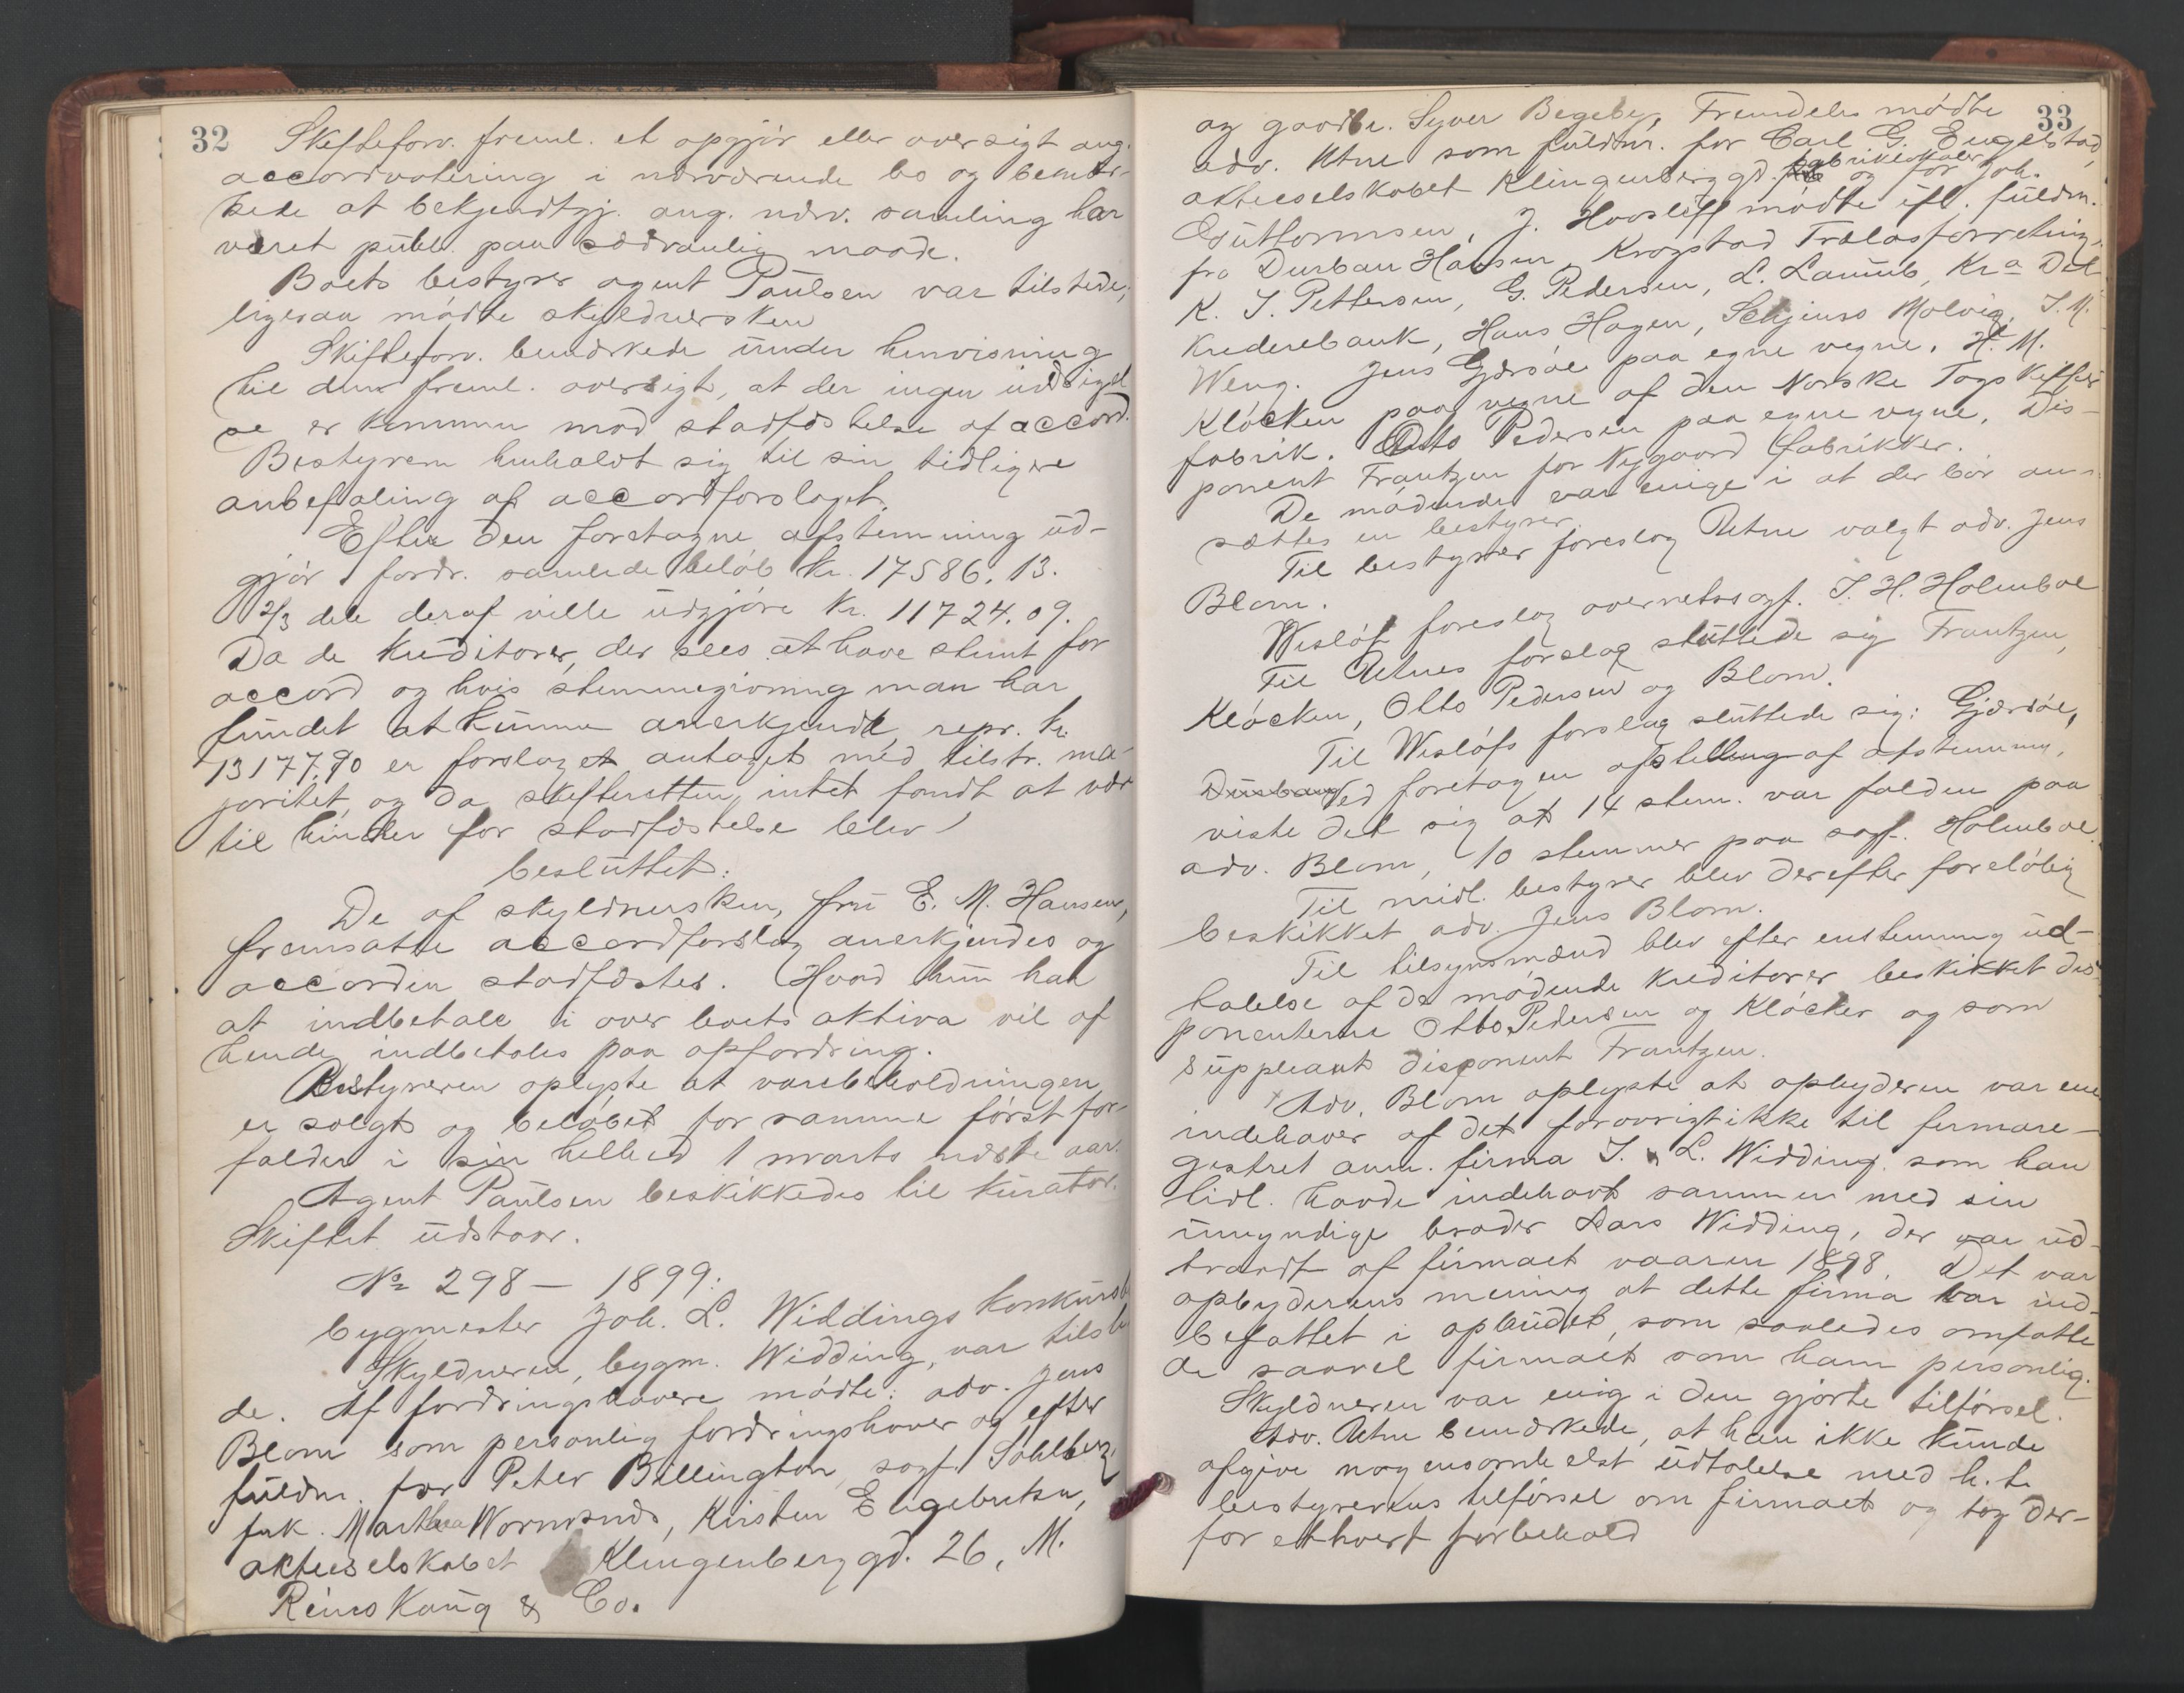 32
Skifteforv. freml. et opgjör eller oversigt ang.
accordvotering i nærværende bo og bemær-
kede at bekjendtgj. ang. nærv. samling har
været publ. paa sædvanlig maade.
Boets bestyrer agent Paulsen var tilstede,
ligesaa mödte skyldnersken
Skifteforv. bemærkede under henvisning
til den freml. oversigt, at der ingen indsigel
se er kommen mod stadfæstelse af accord.
Bestyreren henholdt sig til sin tidligere
anbefaling af accordforslaget.
Efter den foretagne afstemning ud-
gjör fordr. samlede belöb Kr. 17586.13.
2/3 dele deraf ville udgjöre Kr. 11724.09.
Da de kreditorer, der sees at have stemt for
accord og hvis stemmegivning man har
fundet at kunne anerkjende repr. kr.
13177,90 er forslaget antaget med tilstr. ma-
joritet og da skifteretten intet fandt at vær
til hinder for stadfæstelse blev
besluttet:
De af skyldnersken, fru E. M. Hansen,
fremsatte accordforslag anerkjendes og
accorden stadfæstes. Hvad hun har
at indbetale i over boets aktiva vil af
hende indbetales paa opfordring.
Bestyreren oplyste at varebeholdningen
er solgt og belöbet for samme först for-
falder i sin helhed 1 marts næste aar.
Agent Paulsen beskikkedes til kurator.
Skiftet udstaar.
No 298 - 1899:
bygmester Joh. L. Widdings konkursb
Skyldneren, bygm. Widding, var tilste
de. Af fordringshavere mödte: adv. Jens
Blom som personlig fordringshaver og efter
fuldm. for Peter Billington, sagf. Sohlberg,
frk. Marthea Wormsnds, Kirsten Engebretsen,
aktieselskabet Klingenberggd. 26, M.
& Co.
33
og gaardbr. Syver Begeby, Fremdeles mödte
adv. Utne som fuldm. for Carl G. Engelstad,
aktieselskabet Klingenberggd. fabriklokaler og for Joh.
Guttormsen, J. Hovsliff mödte ifl. fuldm.
fra Durban Hansen, Krogstad Trælasforretning,
K. J. Pettersen, G. Pedersen, L. Laumb, Kra Det
Krederebank, Hans Hagen, Schjinso Molvig, J. M.
Weng. Jens Gjersöe paa egne vegne. H. M.
Klöcken paa vegne af den Norske Tagskiffer
fabrik. Otto Pedersen paa egne vegne, Dis-
ponent Frantzen for Nygaard fabrikker.
De mödende var enige i at der bör an-
sættes en bestyrer.
Til bestyrer foreslog Utne valgt adv. Jens
Blom.
Weslöf foreslog overretssagf. J. H. Holmboe
Til Utnes forslag sluttede sig Frantzen,
Klöcken, Otto Pedersen og Blom.
Til Weslöfs forslag sluttede sig: Gjersöe,
Ved foretagen optelling af afstemning,
viste det sig at 14 stem. var falden paa
adv. Blom, 10 stemmer paa sagf. Holmboe.
Til midl. bestyrer blev derefter forelöbig
beskikket adv. Jens Blom.
Til tilsynsmænd blev efter enstemmig ud-
talelse af de mödende kreditorer beskikket dis-
ponenterne Otto Pedersen og Klöcker og som
suppleant disponent Frantzen.
Adv. Blom oplyste at opbyderen var ene
indehaver af det forövrigt ikke til firmare-
gistret anm. firma J. & L. Widding. som han
tidl. havde indehavt sammen med sin
umyndige broder Lars Widding, der var ud-
traadt af firmaet vaaren 1898. Det var
opbyderens mening at dette firma var ind-
befattet i opbudet, som saaledes omfatte
de saavel firmaet som ham personlig.
Skyldneren var enig i den gjorte tilförsel.
Adv. Utne bemærkede, at han ikke kunde
afgive nogensomhelst udtalelse med h. t.
bestyrerens tilförsel om firmaet og tog der-
for ethvert forbehold